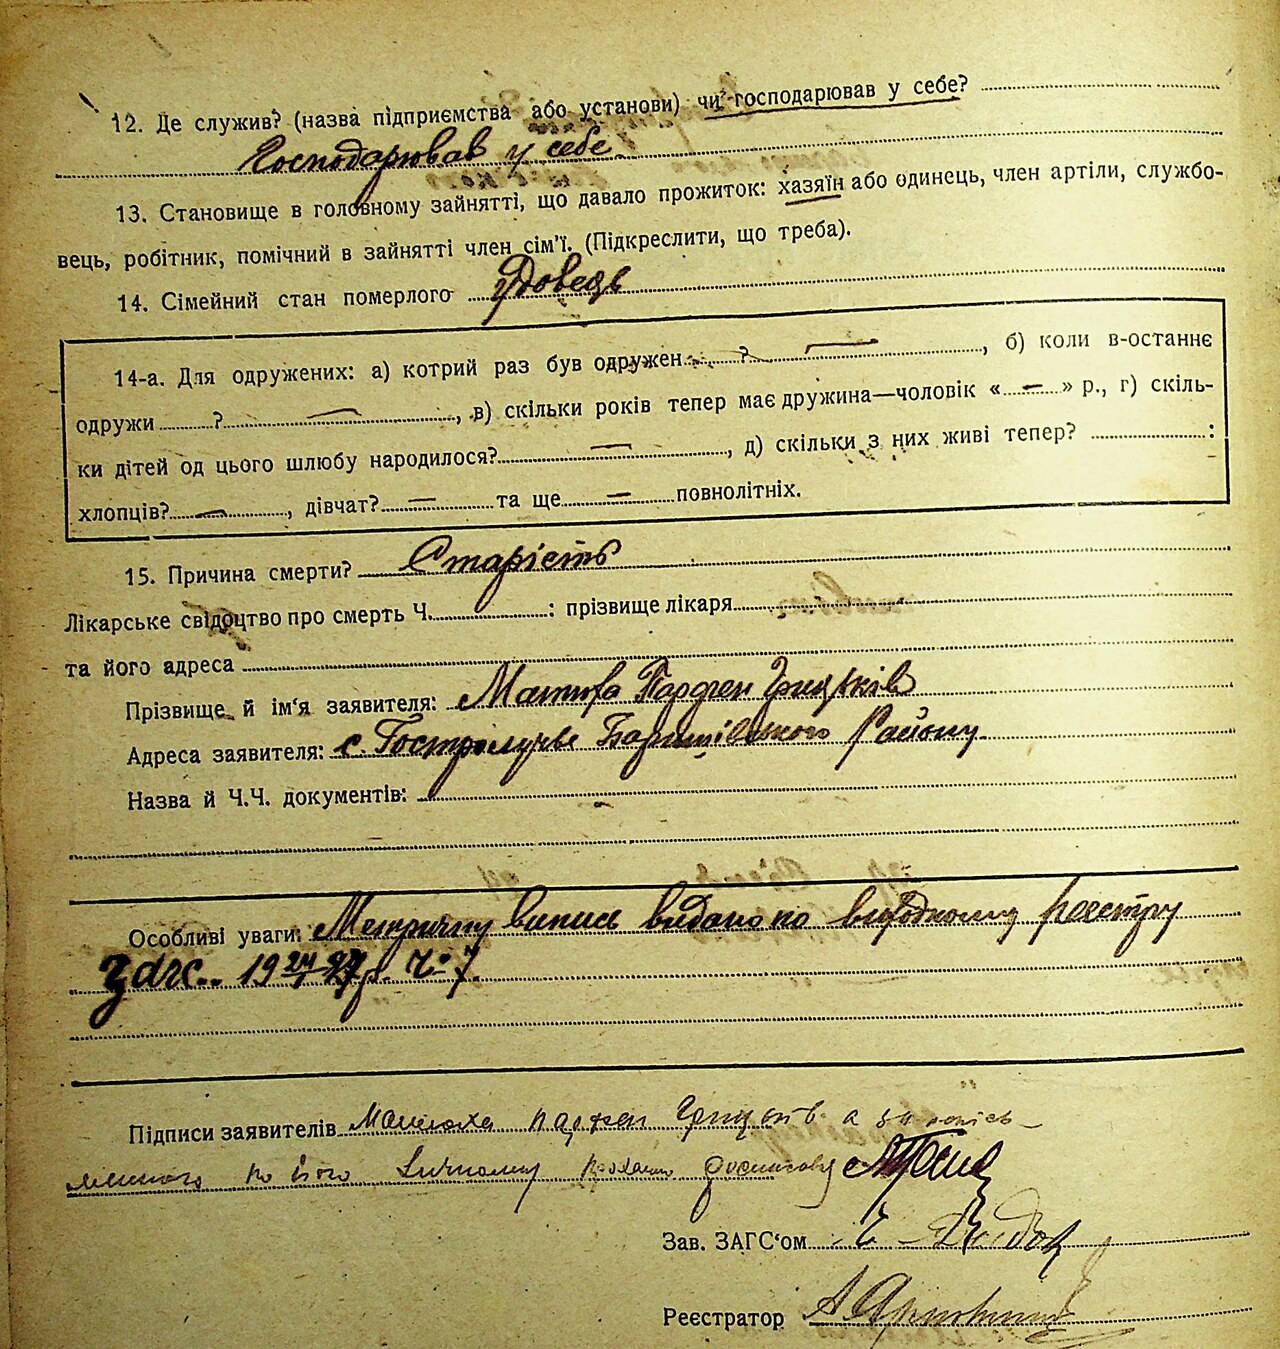 12. Де служив? (назва підприємства або установи) чи господарював у себе?
Господарював у себе
13. Становище в головному зайнятті, що давало прожиток: хазяїн або одинець, член артіли, службо-
вець, робітник, помічний в зайнятті член сім'ї. (Підкреслити, що треба).
14. Сімейний стан померлого Вдовець
14-а. Для одружених: а) котрий раз був одружен ? —, б) коли в-останнє
одружи ? —, в) скільки років тепер має дружина—чоловік « — » р., г) скіль-
ки дітей од цього шлюбу народилося? —, д) скільки з них живі тепер? :
хлопців? —, дівчат? — та ще — повнолітніх.
15. Причина смерти? Старість
Лікарське свідоцтво про смерть Ч. : прізвище лікаря
та його адреса
Прізвище й ім'я заявителя: Парфен Грицьків
Адреса заявителя: с Гостролуччє Баришівського Району
Назва й Ч.Ч. документів:
Особливі уваги: Метричну випись видано по вихідному реєстру
19 24/I 27 р. Ч. 7.
Підписи заявителів Парфен Грицьків а за
по його
Зав. ЗАГС'ом
Реєстратор А